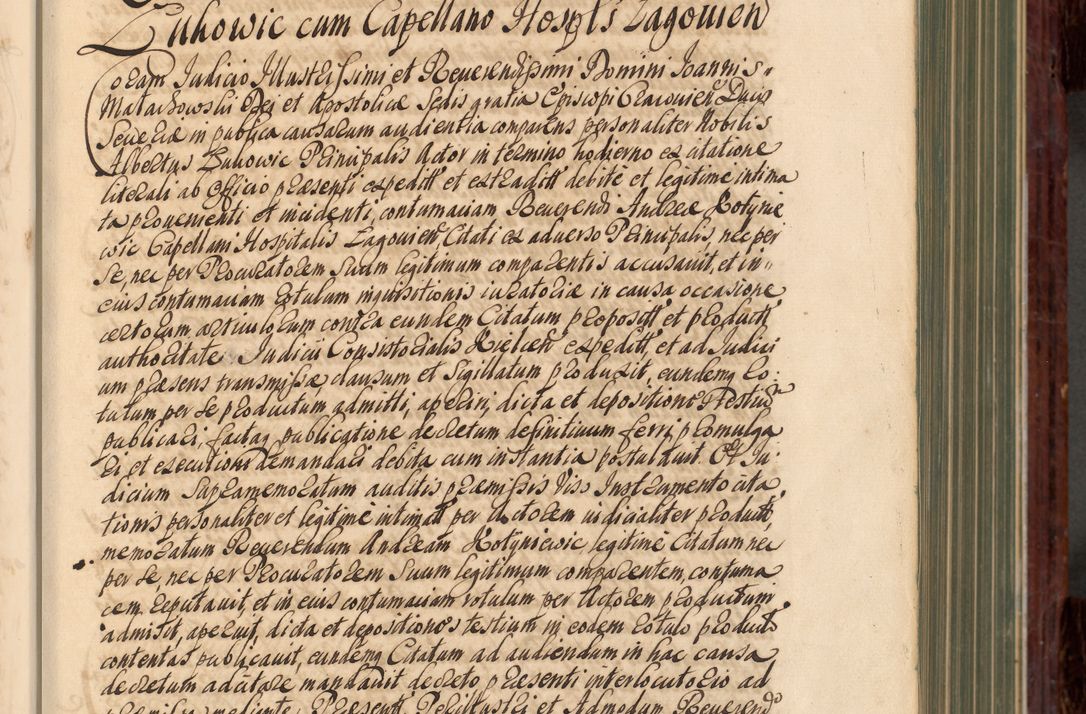 Zuhowic cum Capellano Hosplis Lagovien
Coram Judicio Illustrissimi et Reverendissimi Domini Joannis
Małachowski Dei et Apostolicæ Sedis gratia Episcopi Cracovien Ducis
Severiæ in publica causarum audientia comparens personaliter Nobilis
Albertus Zuhowic Principalis Actor in termino hodierno ex citatione
literali ab Officio præsenti expeditt et extraditt debite et legitime intima
ta provenienti et incidenti, contumaciam Reverendi Andreæ Kotynie
wic Capellani Hospitalis Lagovien, Citati ex adverso Principalis, nec per
se, nec per Procuratorem suum legitimum comparentis accusavit, et in
eius contumaciam rotulum inquisitionis iuratoriæ in causa occasione
certorum articulorum contra eundem Citatum propositt et productt
authoritate Judicii Consistorialis Kielcen expeditt, et ad Judici
um præsens transmissæ, clausum et sigillatum produxit, eundemq ro:
tulum per se productum admitti, aperiri, dicta et depositiones Testium
publicari, factaq publicatione decretum definitivum ferri, promulga
ri et executioni demandari debita cum instantia postulavit. Et Ju
dicium Supramemoratum auditis præmissis Viso Instrumento cita
tionis personaliter et legitime intimatt per Actorem iudicialiter productt,
memoratum Reverendum Andream Kotyniewic legitime Citatum nec
per se, nec per Procuratorem Suum legitimum comparentem, contuma
cem reputavit, et in eius contumaciam rotulum per Actorem productum
admisit, aperuit, dicta et depositiones testium in eodem rotulo productt
contentas publicavit, eundemq Citatum ad audiendum in hac causa
decretum adcitare mandavit decreto præsenti interlocutorio ad
præmissa mediante. Præsentt Perillustri et Admodum Reverend